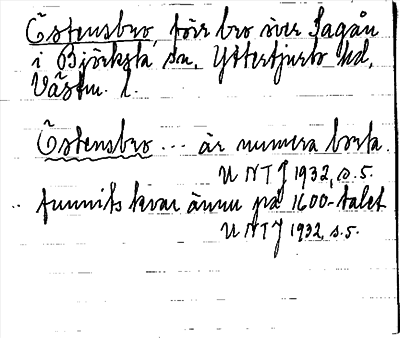 Östensbro, förr bro över Sagån
i Björksta sn, Yttertjurbo hd,
Västm. l.
Östensbro ... är numera borta.
UNTJ 1932, s. 5.
.. funnits kvar ännu på 1600-talet
UNTJ 1932, s. 5.